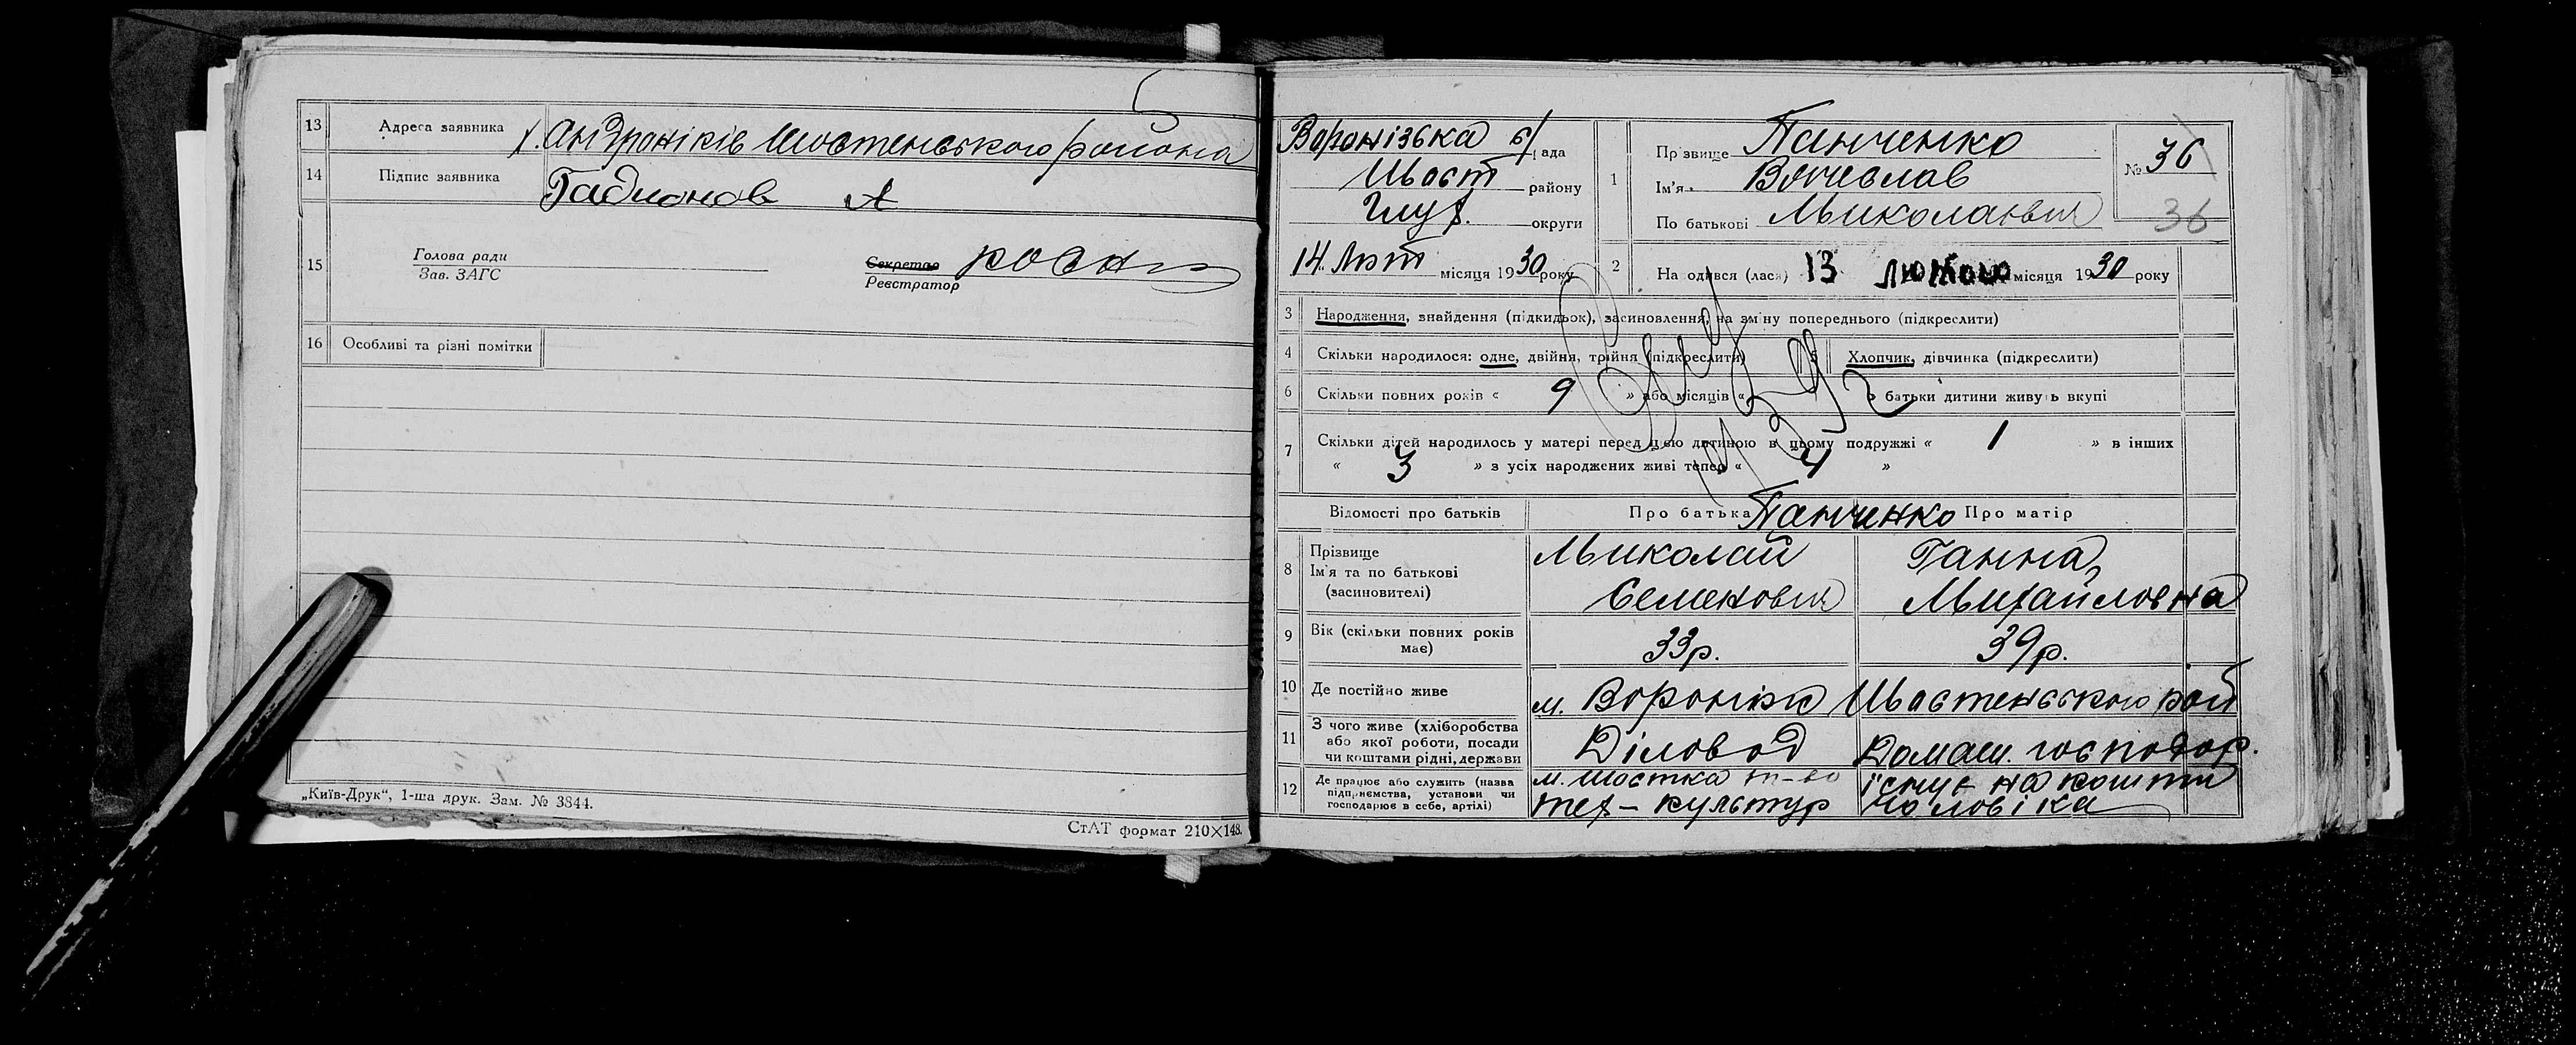 13 Адреса заявника х. Андроніків Шостенського района
14 Підпис заявника Гадионов А
15 Голова ради
Зав. ЗАГС
Секретар
Реєстратор
16 Особливі та різні помітки
„Київ-Друк“, 1-ша друк. Зам. № 3844.
СтАТ формат 210×148.
Воронізька с/рада
Шост району
Глух. округи
14 Лют місяця 1930 року
1 Прізвище Панченко
Ім'я Вячеслав
По батькові Миколаєвич
№ 36
36
2 На одився (лася) 13 лютого місяця 1930 року
3 Народження, знайдення (підкидьок), засиновлення, на зміну попереднього (підкреслити)
4 Скільки народилося: одне, двійня, трійня (підкреслити) 5 Хлопчик, дівчинка (підкреслити)
6 Скільки повних років « 9 » або місяців « » батьки дитини живуть вкупі
7 Скільки дітей народилось у матері перед цією дитиною в цьому подружжі « 1 » в інших
« 3 » з усіх народжених живі тепер « 4 »
Відомості про батьків Про батька Панченко Про матір
8 Прізвище
Ім'я та по батькові
(засиновителі)
Миколай
Семенович
Ганна
Михайловна
9 Вік (скільки повних років
має)
33р. 39р.
10 Де постійно живе м. Вороніж Шостенського рай
11 З чого живе (хліборобства
або якої роботи, посади
чи коштами рідні, держави
Діловод Домаш. господар.
12 Де працює або служить (назва
підприємства, установи чи
господарює в себе, артілі)
м. Шостка т-во
тех-культур
існує на кошти
чоловіка